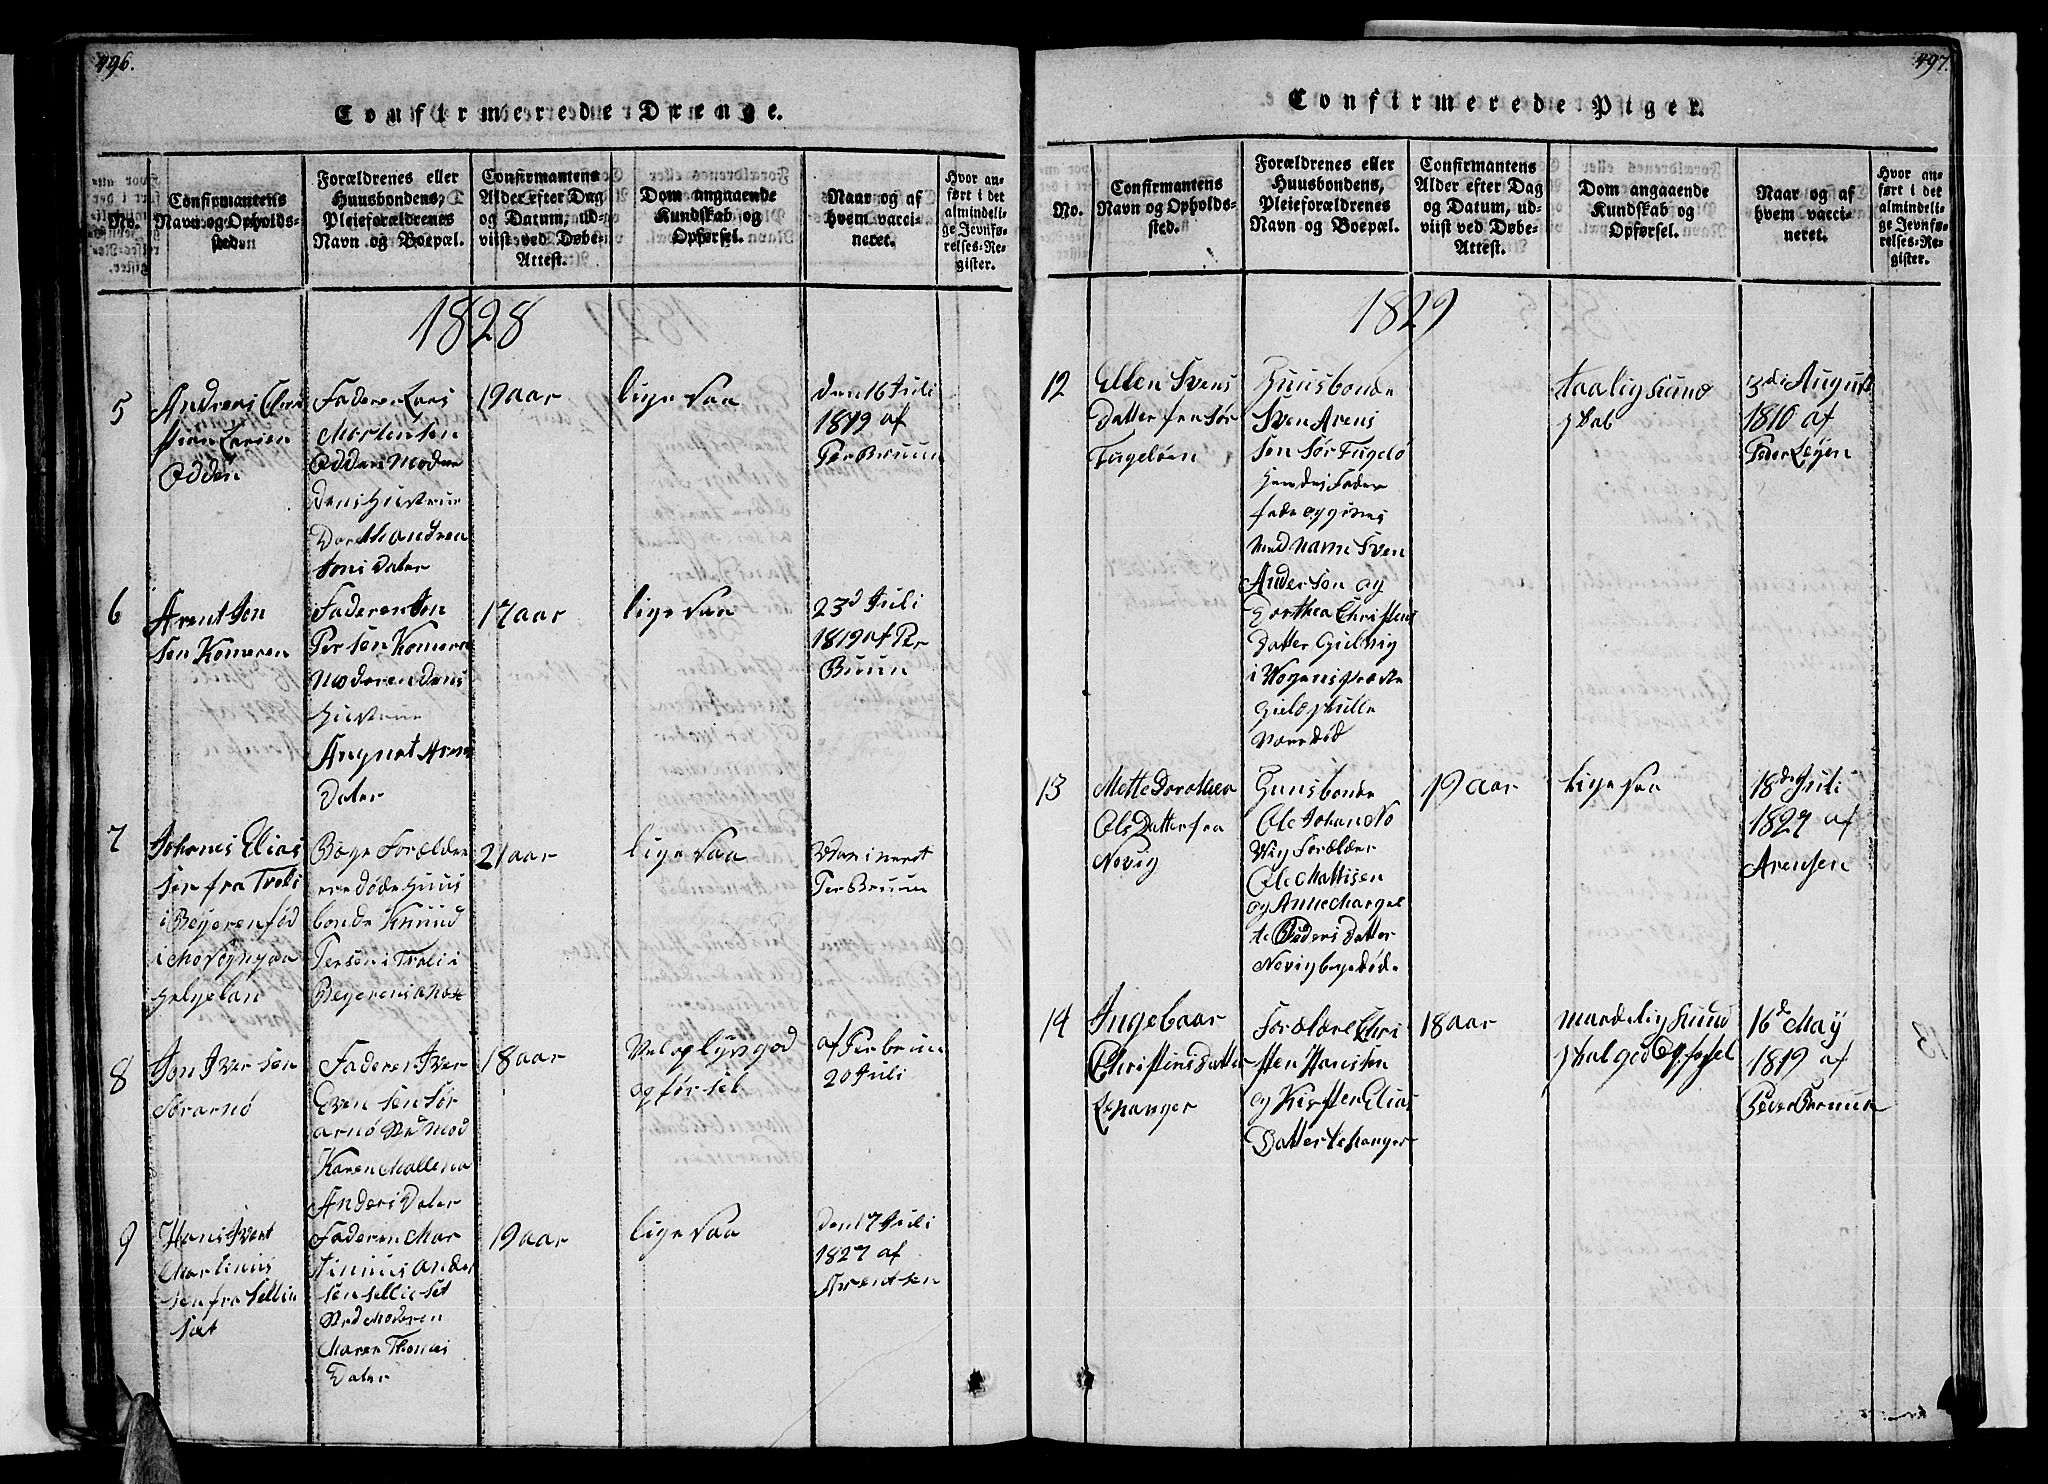 496.
Confirmerede Drenge.
No.
Confirmantens
Navn og Opholds-
sted.
Forældrenes eller
Huusbondens,
Pleieforældrenes
Navn og Boepæl.
Confirmantens
Alder efter Dag
og Datum, ud-
viist ved Døbe-
Attest.
Dom angaaende
Kundskab og
Opførsel.
Naar og af
hvem vacci-
neret.
Hvor an-
ført i det
almindeli-
ge Jevnfø-
relses-Re-
gister.
1828
5
Andreas Chri
stian Larsen
Odden
Faderen Lars
Mortensen
Odden Moder
Dens Hustrue
Dorthe Andrea
Jons Dater
19 aar
lige saa
den 16 Juli
1819 af
Per Bruun
6
Arent Jon
sen Komeren
Faderen Jon
Persen Komern
Moderen Dens
Hustrue
Angnet Arens
Dater
17 aar
lige saa
23d Juli
1819 af Per
Bruun
7
Johanes Elias
sen fra Troli
i Bejeren fød
i Mo
Helgelan
Bege Forælder
ere Døde Huus
bonde Knud
Persen i Troli i
Bejerens
21 aar
lige saa
Per Bruun
8
Jon Iversen
Sørarnø
Faderen Iver
Evensen Sør
arnø Med Mod
Karen Mallena
Anders Dater
18 aar
Vel oplyst god
opførsel
af Per bruun
20 Juli
9
Hans Evert
Martinus
sen fra Sellie
sæt
Faderen Mar
tinius Ander
sen Selliesæt
Med Moderen
Maren Thomas
Dater
19 aar
lige saa
den 17 Juli
1827 af
Arentsen
497.
Confirmerede Piger.
No.
Confirmantens
Navn og Opholds-
sted.
Forældrenes eller
Huusbondens,
Pleieforældrenes
Navn og Boepæl.
Confirmantens
Alder efter Dag
og Datum, ud-
viist ved Døbe-
Attest.
Dom angaaende
Kundskab og
Opførsel.
Naar og af
hvem vacci-
neret.
Hvor an-
ført i det
almindeli-
ge Jevnfø-
relses-Re-
gister.
1829
12
Ellen Svens
Datter fra Sør
Fugeløen
Huusbonde
Sven Arens
Sen Sør Fugelø
Hendes Fader
Med Navn Sven
Andersen og
Dorthea Christens
Datter Gielvig
i
Gield
Være Død
taalig kund
skab
3de August
1810 af
Peder Leyen
13
Mette Dorothea
Ols Datter fra
Novig
Huusbonde
Ole Johan No
Wig Forælder
Ole Mattisen
og Anne Margre
te Peders Datter
Novig bege døde
19 aar
lige saa
18de Juli
1827 af
Arensen
14
Ingebaar
Christens Datter
Lehanger
Forældre Chri
sten Hansen
og Kirsten Elias
Datter Lehanger
18 aar
maadelig kund
skab god Opførsel
16de May
1819 af
Peder Bruun